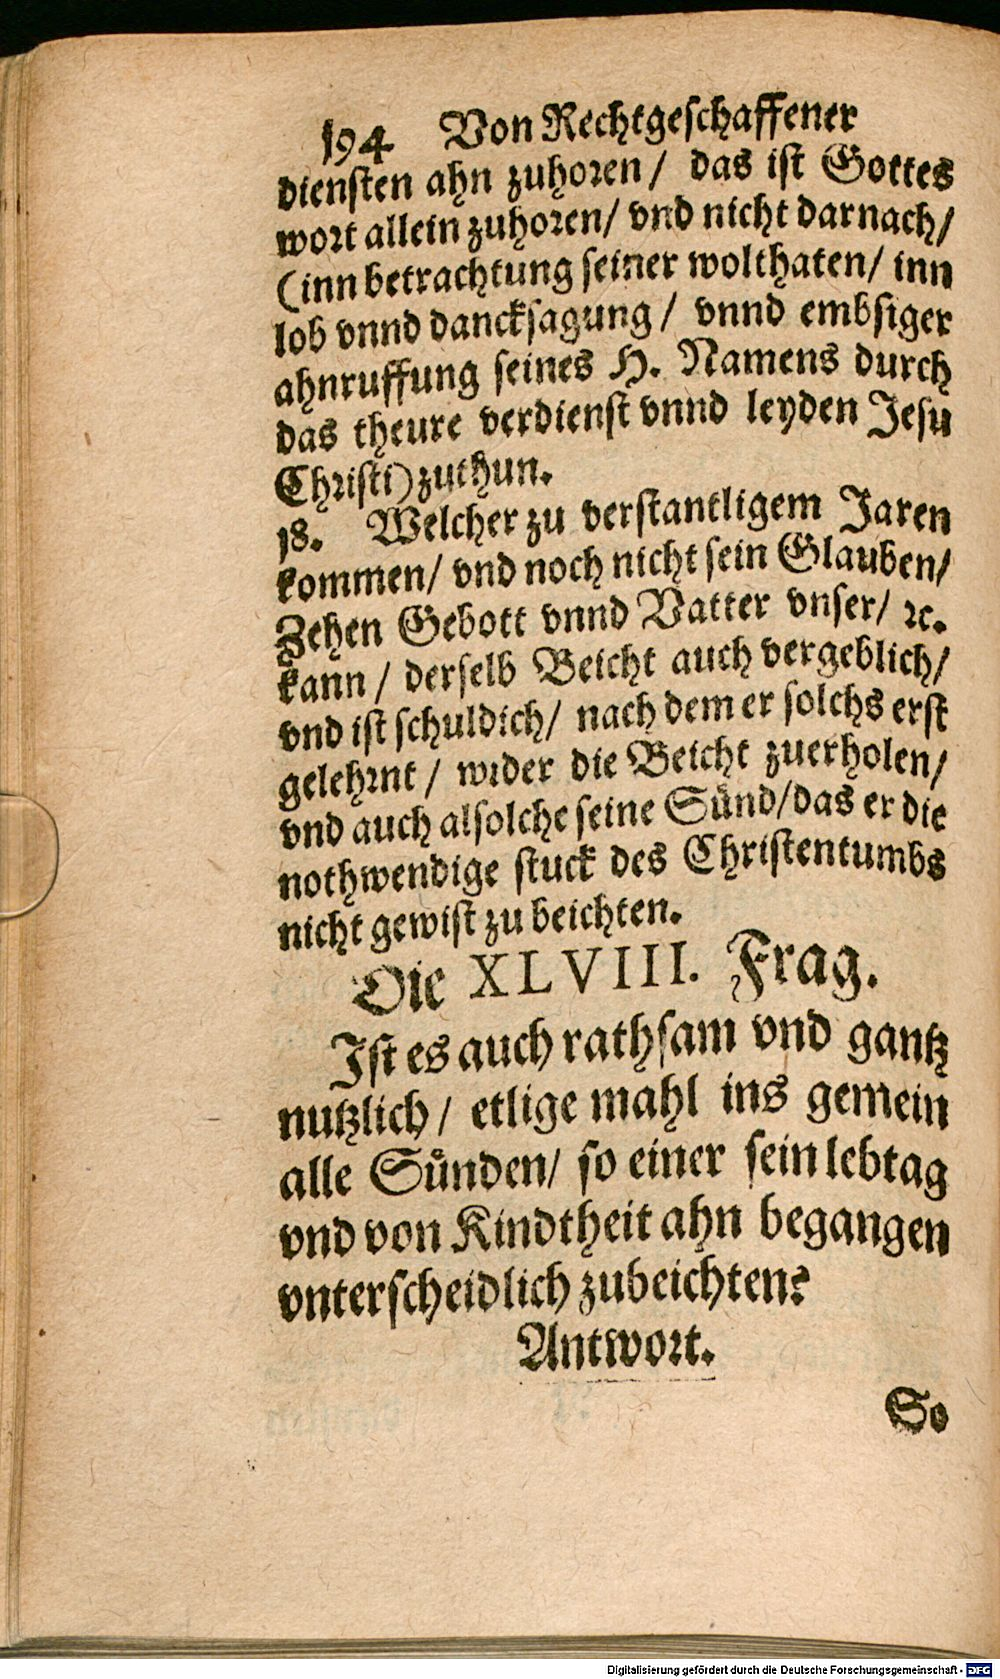 194 Von Rechtgeschaffener
diensten ahn zuhoren / das ist Gottes
wort allein zuhoren / vnd nicht darnach /
(inn betrachtung seiner wolthaten / inn
lob vnnd dancksagung / vnnd embsiger
ahnruffung seines H. Namens durch
das theure verdienst vnnd leyden Jesu
Christi) zuthun.
18. Welcher zu verstantligem Jaren
kommen / vnd noch nicht sein Glauben /
Zehen Gebott vnnd Vatter vnser / ꝛc.
kann / derselb Beicht auch vergeblich /
vnd ist schuldich / nach dem er solchs erst
gelehrnt / wider die Beicht zuerholen /
vnd auch alsolche seine Sünd / das er die
nothwendige stuck des Christentumbs
nicht gewist zu beichten.
Die XLVIII. Frag.
Ist es auch rathsam vnd gantz
nutzlich / etlige mahl ins gemein
alle Sünden / so einer sein lebtag
vnd von Kindtheit ahn begangen
vnterscheidlich zubeichten?
Antwort.
So
Digitalisierung gefördert durch die Deutsche Forschungsgemeinschaft - DFG